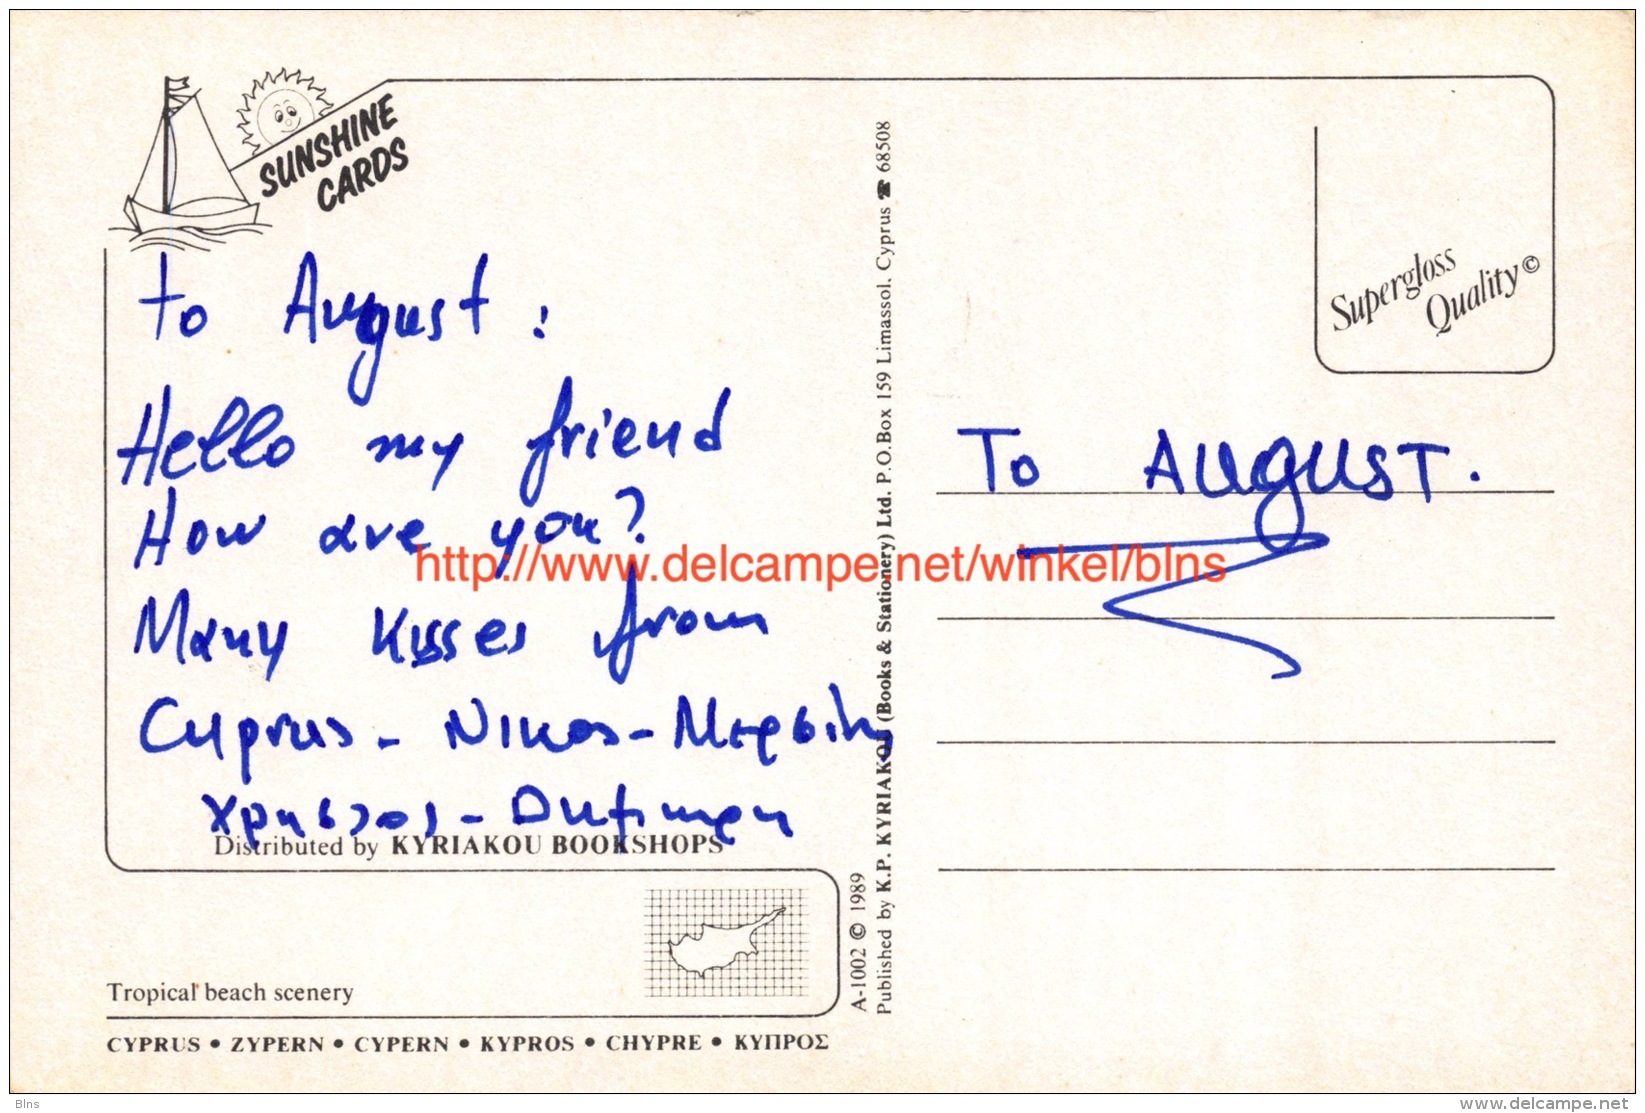 SUNSHINE
CARDS
To August :
Hello my friend
How are you?
Many Kisses from
Cyprus - Νικος -
Χρηστος -
Distributed by KYRIAKOU BOOKSHOPS
Tropical beach scenery
CYPRUS • ZYPERN • CYPERN • KYPROS • CHYPRE • ΚΥΠΡΟΣ
A-1002 © 1989
Published by K.P. KYRIAKOU (Books & Stationery) Ltd. P.O.Box 159 Limassol, Cyprus ☎ 68508
Supergloss
Quality©
To AUGUST.
http://www.delcampe.net/winkel/blns
Blns
www.delcampe.net